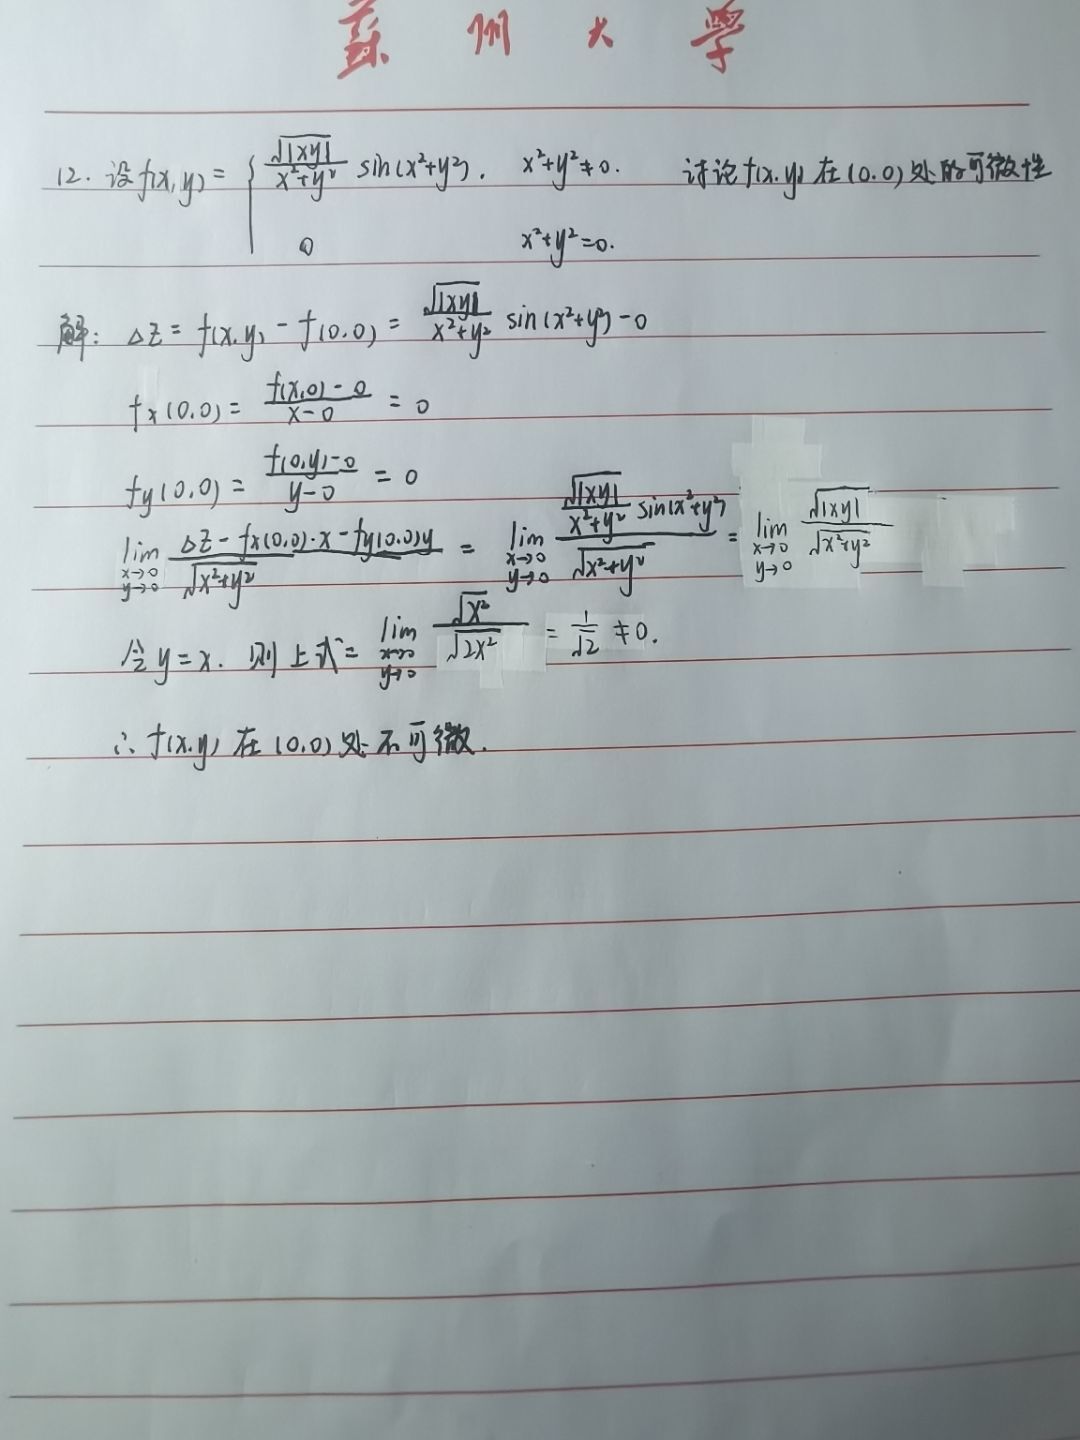 蘇州大學
12. 设f(x,y) = { √|xy|/(x²+y²) sin(x²+y²), x²+y²≠0. 讨论f(x,y)在(0,0)处的可微性
0 x²+y²=0.
解: △z = f(x,y) - f(0,0) = √|xy|/(x²+y²) sin(x²+y²) - 0
fx(0,0) = (f(x,0) - 0)/(x-0) = 0
fy(0,0) = (f(0,y) - 0)/(y-0) = 0
lim x→0 y→0 (△z - fx(0,0)·x - fy(0,0)y)/√(x²+y²) = lim x→0 y→0 (√|xy|/(x²+y²) sin(x²+y²))/√(x²+y²) = lim x→0 y→0 √|xy|/√(x²+y²)
令y=x. 则上式= lim x→0 y→0 √x²/√2x² = 1/√2 ≠0.
∴ f(x,y)在(0,0)处不可微.